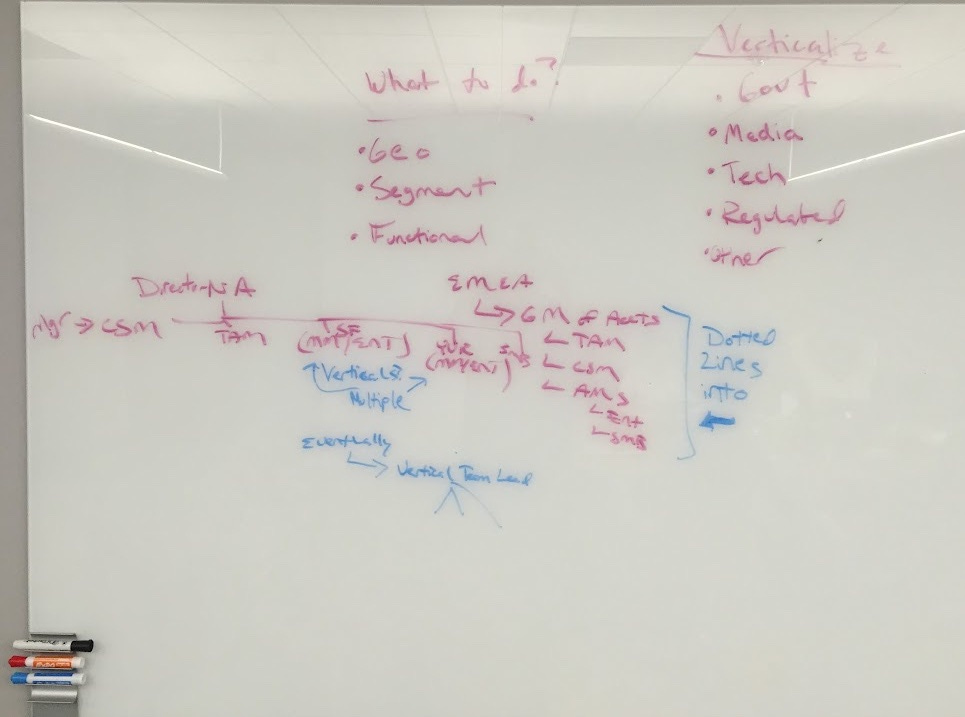 What to do?
• Geo
• Segment
• Functional
Verticalize
• Gov't
• Media
• Tech
• Regulated
• Other
Director NA
Mgr → CSM
TAM
TSE
(MM/ENT)
(MM/ENT)
SMB
Verticals?
Multiple
Eventually
Vertical Team Lead
EMEA
GM of Accts
TAM
CSM
AMs
Ent
SMB
Dotted
Lines
into